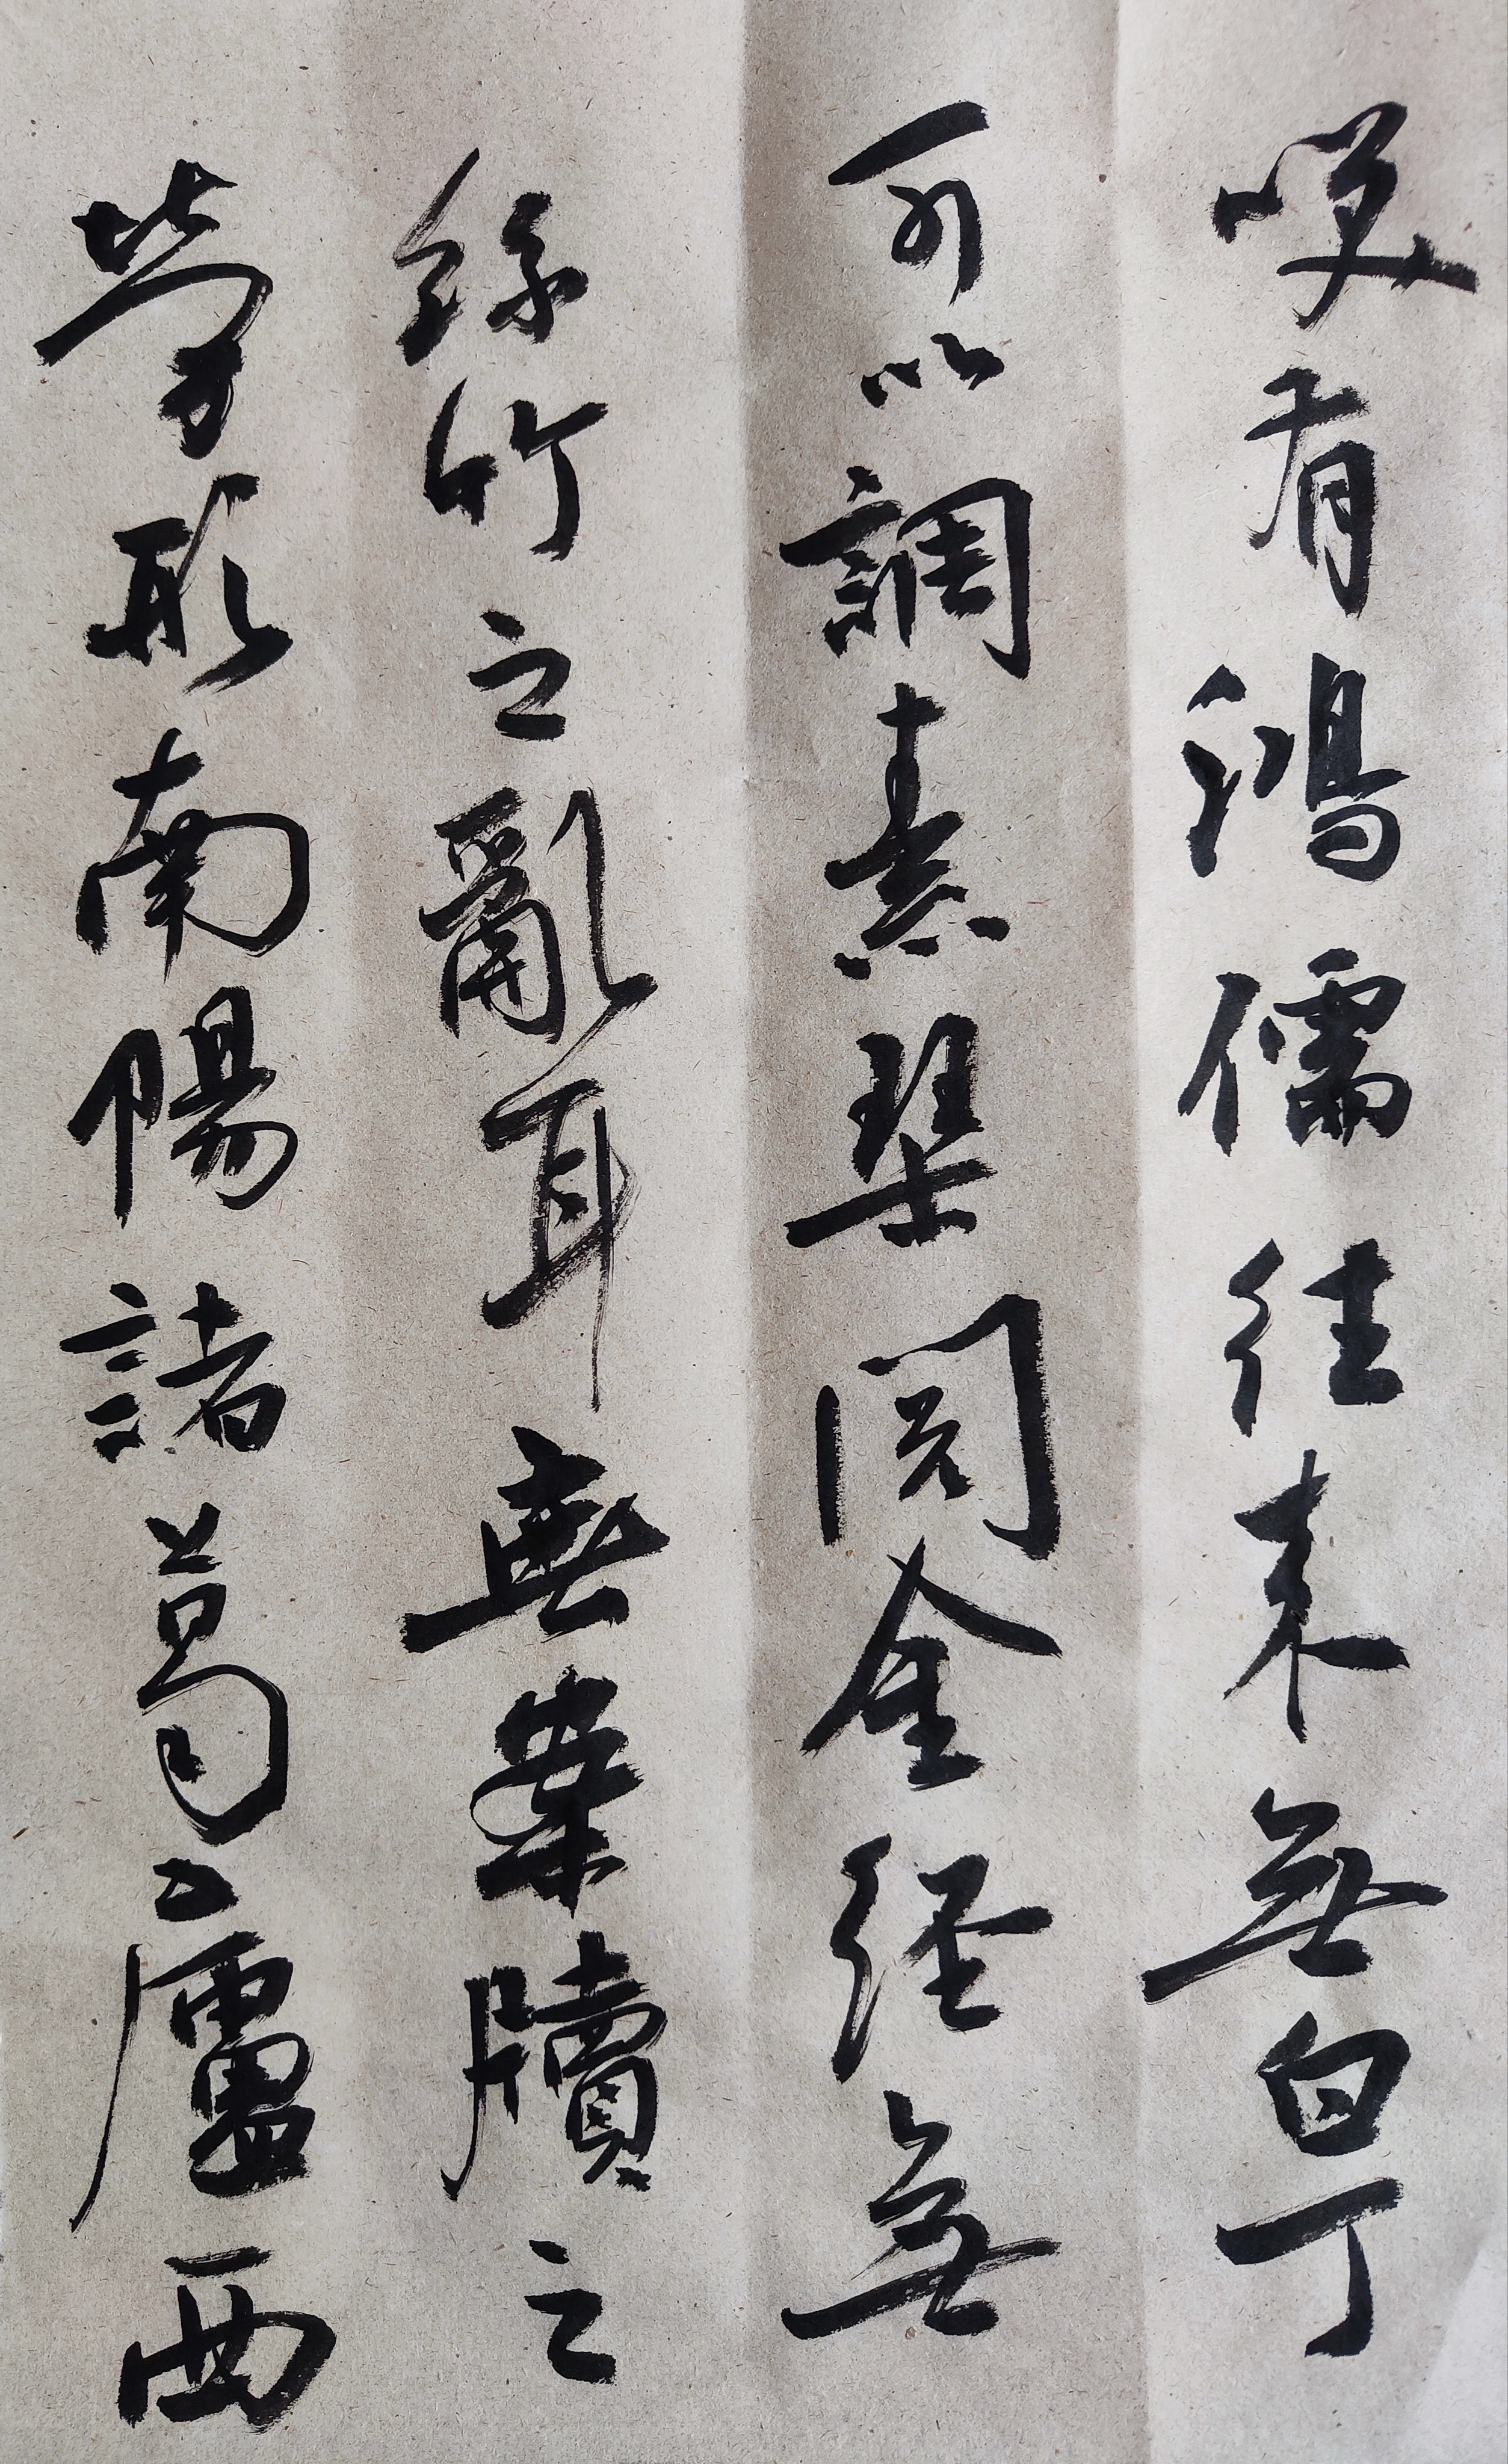 笑有鴻儒往來無白丁
可以調素琴閱金經無
絲竹之亂耳無案牘之
勞形南陽諸葛之廬西